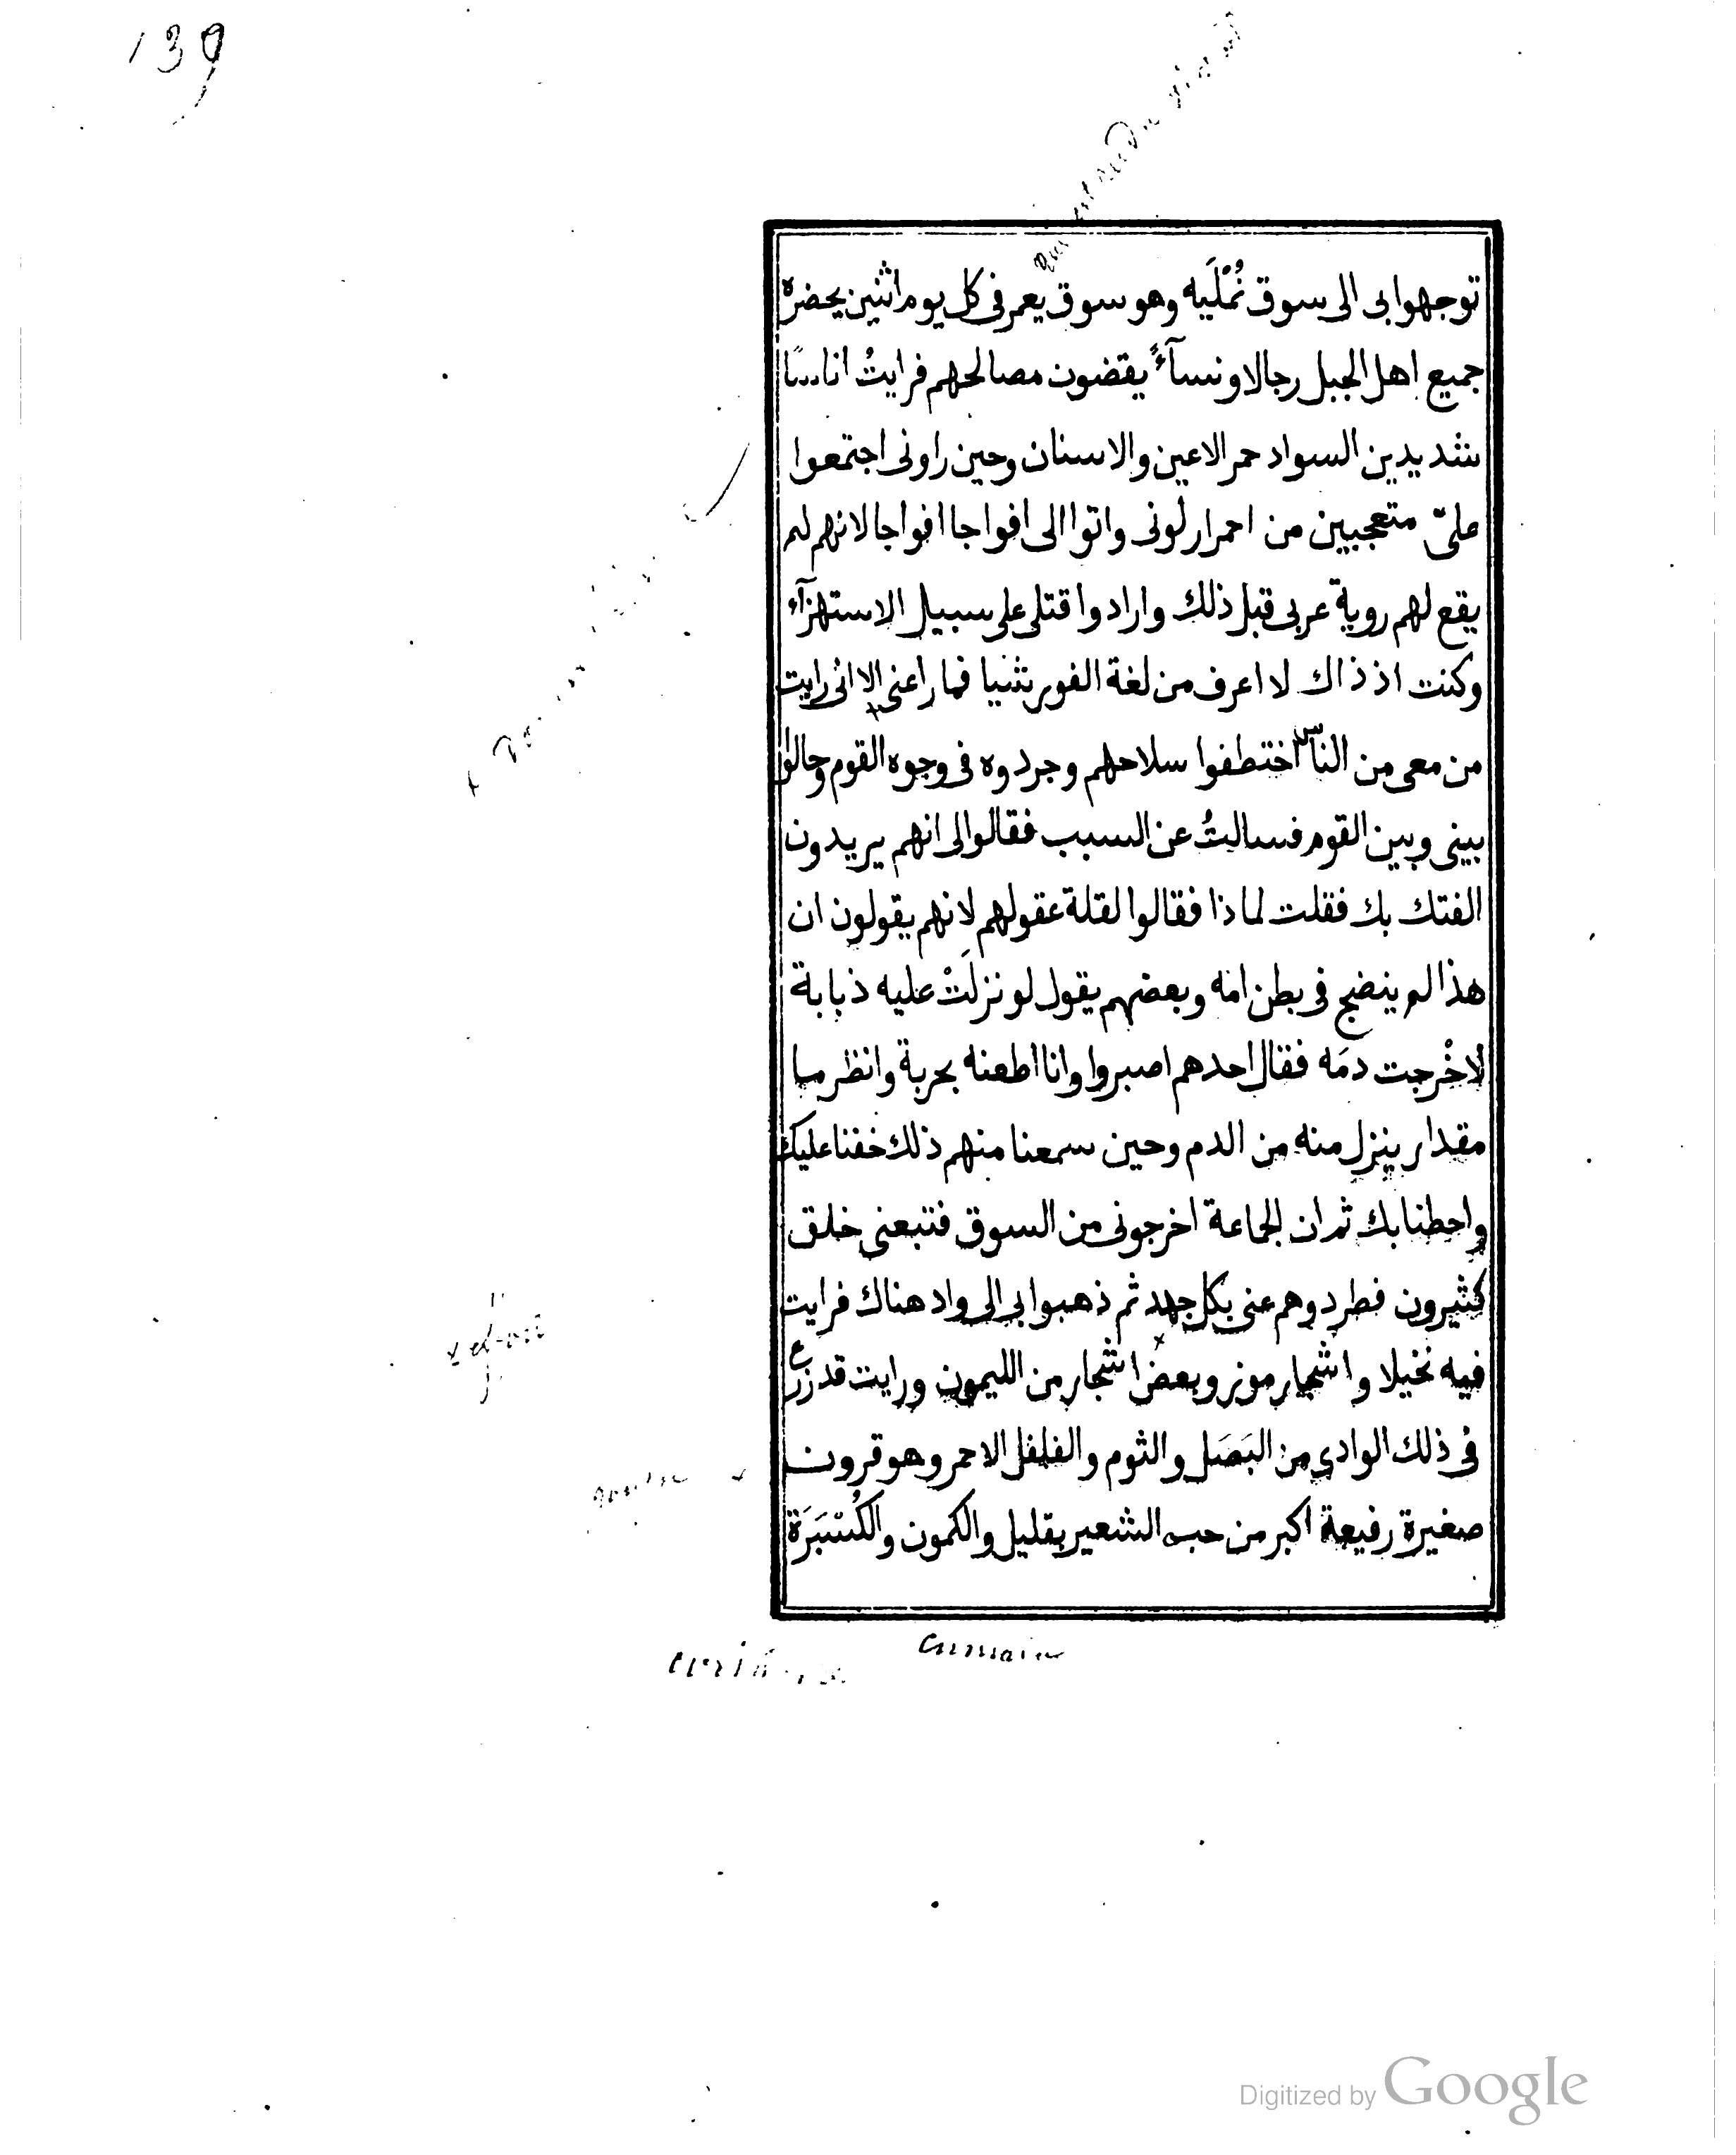 139
توجهوا بى الى سوق نُمْلَيه وهو سوق يعمر فى كل يوم اثنين يحضره
جميع اهل الجبل رجالا ونسآءً يقضون مصالحهم فرايتُ اناسًا
شديدين السواد حمر الاعين والاسنان وحين راونى اجتمعوا
علىّ متعجبين من احمرار لونى واتوا الى افواجا افواجا لانهم لم
يقع لهم روية عربى قبل ذلك وارادوا قتلى على سبيل الاستهزآء
وكنت اذ ذاك لا اعرف من لغة الفور شيا فما راعنى الا انى رايت
من معى من الناس اختطفوا سلاحهم وجردوه فى وجوه القوم وحالوا
بينى وبين القوم فسالتُ عن السبب فقالوا لى انهم يريدون
الفتك بك فقلت لماذا فقالوا لقلة عقولهم لانهم يقولون ان
هذا لم ينضج فى بطن امه وبعضهم يقول لو نزلَتْ عليه ذبابة
لاخْرجت دمَه فقال احدهم اصبروا وانا اطعنه بحربة وانظر ما
مقدار ينزل منه من الدم وحين سمعنا منهم ذلك خفنا عليك
واحطنا بك ثم ان الجماعة اخرجونى من السوق فتبعنى خلق
كثيرون فطردوهم عنى بكل جهد ثم ذهبوا بى الى واد هناك فرايت
فيه نخيلا واشجار موز وبعض اشجار من الليمون ورايت قد زرع
فى ذلك الوادى من البَصَل والثوم والفلفل الاحمر وهو قرون
صغيرة رفيعة اكبر من حب الشعير بقليل والكمون والكُسْبَرَة
Digitized by Google